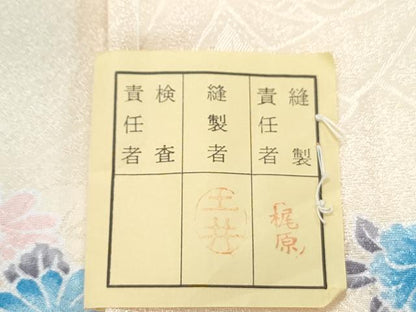 縫製
責任者
縫製者
検査
責任者
梶原
土井